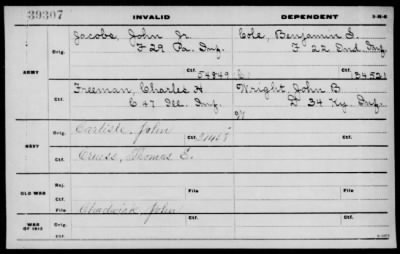 39307 INVALID DEPENDENT 3-25-6
Jacobs, John Jr. Cole, Benjamin S.
Orig. F 29 Pa. Inf. F 22 Ind. Inf.
ARMY Ctf. 54849 Ctf. 134521
Freeman, Charles H Wright, John B
Ctf. C 47 Ill. Inf. D 34 Ky. Inf.
Carlisle, John
Orig. Ctf.
NAVY
Cruise, Thomas E.
Ctf.
Rej.
OLD WAR File File
Ctf.
Chadwick, John
WAR OF 1812 Orig. Ctf. Ctf.
Ctf.